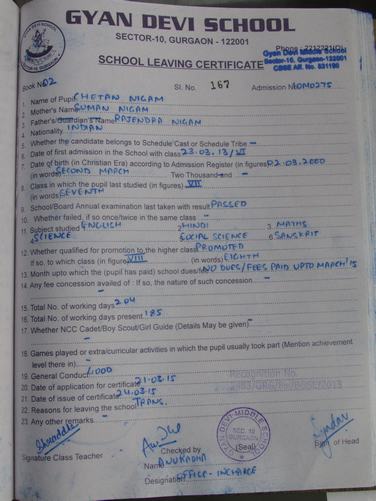 GYAN DEVI SCHOOL
SECTOR-10, GURGAON - 122001
Phone : 2212321(O)
Gyan Devi Middle School
Sector-10, Gurgaon-122001
CBSE Aff. No. 531190
SCHOOL LEAVING CERTIFICATE
Book No. 02 Sl. No. 167 Admission No.
1. Name of Pupil CHETAN NIGAM
2. Mother's Name SUMAN NIGAM
3. Father's/Guardian's Name RAJENDRA NIGAM
4. Nationality INDIAN
5. Whether the candidate belongs to Schedule Cast or Schedule Tribe -
6. Date of first admission in the School with class 23.03.13/VI
7. Date of birth (in Christian Era) according to Admission Register (in figures) 02.03.2000
(in words) SECOND MARCH Two Thousand and -
8. Class in which the pupil last studied (in figures) VII
(in words) SEVENTH
9. School/Board Annual examination last taken with result PASSED
10. Whether failed, if so once/twice in the same class -
11. Subject studied 1 ENGLISH 2 HINDI 3. MATHS
4 SCIENCE 5 SOCIAL SCIENCE 6 SANSKRIT
12. Whether qualified for promotion to the higher class PROMOTED
If so, to which class (in figure) VIII (in words) EIGHTH
13. Month upto which the (pupil has paid) school dues/fees NO DUES/FEES PAID UPTO MARCH'15
14. Any fee concession availed of : If so, the nature of such concession -
15. Total No. of working days 204
16. Total No. of working days present 185
17. Whether NCC Cadet/Boy Scout/Girl Guide (Details May be given) -
18. Games played or extra/curricular activities in which the pupil usually took part (Mention achievement
level there in) -
19. General Conduct GOOD
20. Date of application for certificate 21.03.15
21. Date of issue of certificate 24.03.15
22. Reasons for leaving the school TRANS.
23. Any other remarks -
Recognition No.
GYAN DEVI MIDDLE SCHOOL
SEC. 10
GURGAON
(Seal)
Signature Class Teacher
Checked by
Name ANURADHA
Designation OFFICE-INCHARGE
Sign of Head